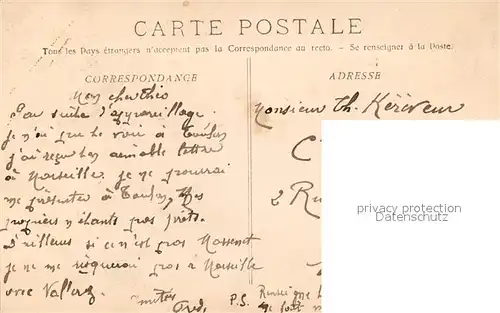 CARTE POSTALE
Tous les Pays étrangers n'acceptent pas la Correspondance au recto. - Se renseigner à la Poste.
CORRESPONDANCE
ADRESSE
Mon cher théo
Par suite d'appareillage
je n'ai pu le voir à Toulon
j'ai reçu ton aimable lettre
à Marseille. je ne pourrai
me présenter à Toulon, Mes
papiers n'étants pas prêts.
D'ailleurs si ce n'est pas Massenet
je ne me risquerai pas à Marseille
avec
Amitiés
Fred.
Monsieur Th. Kéréveur
C
2 Ru
privacy protection
Datenschutz
P.S. Renseigne